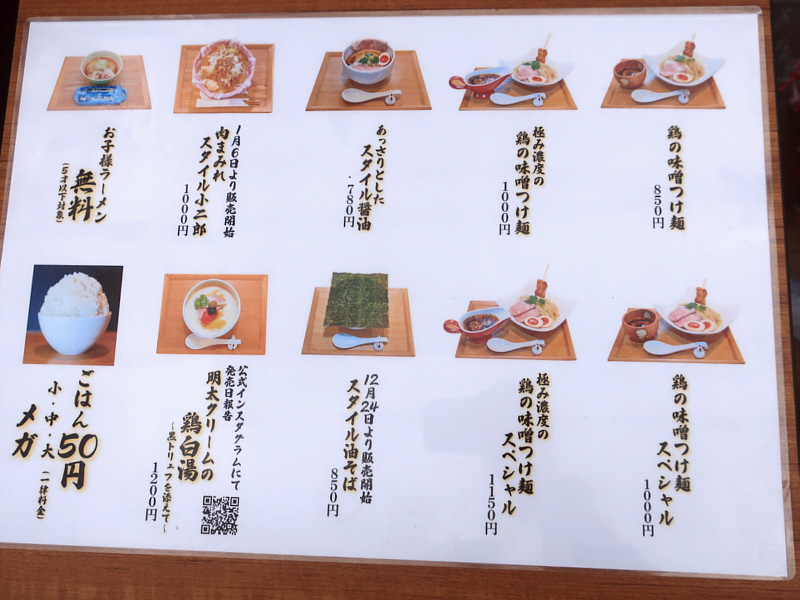 鶏の味噌つけ麺
850円
極み濃度の
鶏の味噌つけ麺
1000円
あっさりとした
スタイル醤油
・780円
1月6日より販売開始
肉まみれ
スタイル小二郎
1000円
お子様ラーメン
無料
(5才以下対象)
鶏の味噌つけ麺
スペシャル
1000円
極み濃度の
鶏の味噌つけ麺
スペシャル
1150円
12月24日より販売開始
スタイル油そば
850円
公式インスタグラムにて
発売日報告
明太クリームの
鶏白湯
～黒トリュフを添えて～
1200円
ごはん50円
小・中・大(一律料金)
メガ